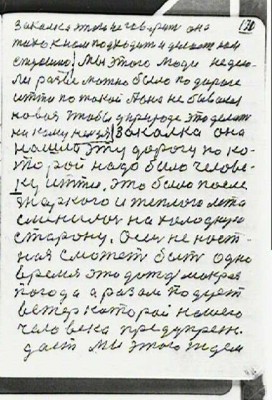 130
Закалка этого не говорит она
тихо к нам подходит и делает нам
студено. Мы этого люди недею-
ли разве можно было по дороге
итти по такой Она не бывала
новая чтобы в природе это делать
на кому нельзя Закалка она
нашла эту дорогу по ко-
торой надо было челове-
ку итти. Это было после
жаркого и теплого лета
сменилось на холодную
сторону. Осень не наст-
ная сможет быть одно
время это дождь мокрая
погода а разом подует
ветер который нашего
человека предупреж-
дает мы этого ждем